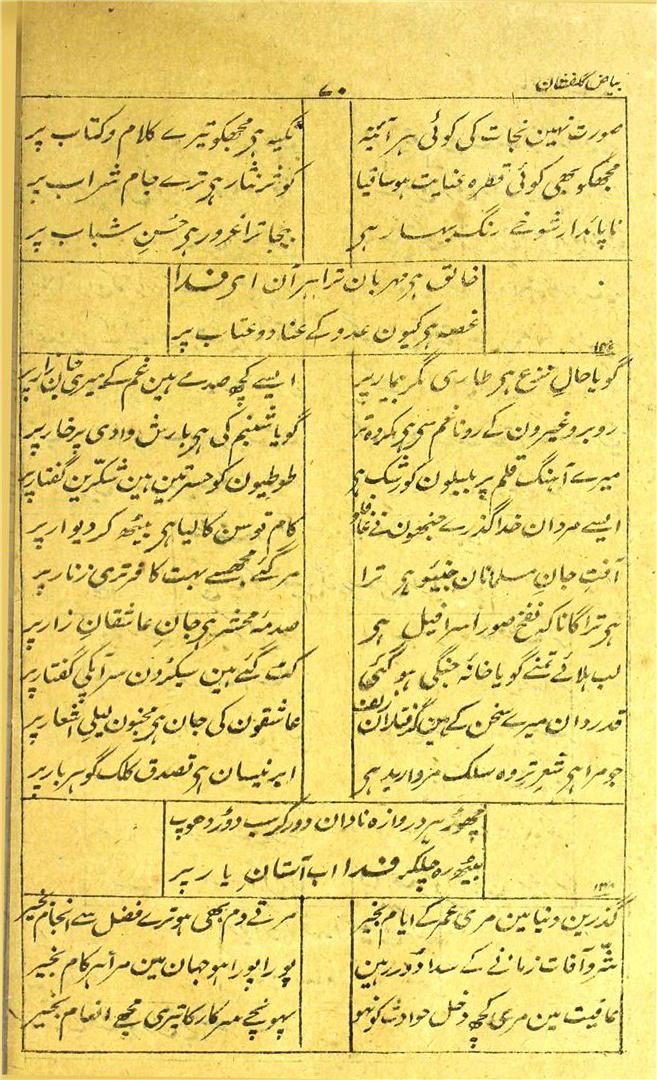 بیاض گلفشان
۷۰
صورت نہین نجات کی کوئی ہر آئینہ تکیہ ہی مجھکو تیرے کلام و کتاب پر
مجھکو بھی کوئی قطرہ عنایت ہو ساقیا کوثر نثار ہی ترے جام شراب پر
ناپائدار شوخے رنگ بہار ہی بیجا ترا غرور ہی حُسنِ شباب پر
خالق ہی مہربان ترا ہر آن ای فدا
غصہ ہی کیون عدو کے عناد و عتاب پر
گویا حالِ نزع ہی طاری مگر بیمار پر ایسے کچھ صدمے ہین غم کے میری جان زار پر
روبرو غیرون کے رونا غم سی ہی بد تر گویا شبنم کی ہی بارش وادی پرخار پر
میرے آہنگ قلم پر بلبلون کو رشک ہی طوطیون کو حسرتین ہین شکّرین گفتار پر
ایسے مردان خدا گذرے جنھون نے کام توسن کا لیا ہی بیٹھ کر دیوار پر
آفتِ جانِ مسلمانان جنیئو ہی ترا مر گئے مجھسے بہت کافر تری زنار پر
ہی ترا گانا کہ نفخ صور اسرافیل ہی صدمۂ محشر ہی جانِ عاشقانِ زار پر
لب ہلائے تمنے گویا خانہ جنگی ہو گئی کٹ گئے ہین سیکڑون سر ایکی گفتار پر
قدردان میرے سخن کے ہین گرفتاران عاشقون کی جان ہی مجنون لیلی اشعار پر
جو مرا ہی شعر تر وہ سلک مروارید ہی ابر نیسان ہی تصدق کلک گوہر بار پر
چھوڑ ہر دروازہ نادان دور کر سب دوڑ دھوپ
بیٹھ رہ چلکر فدا اب آستانِ یار پر
گذرین دنیا مین مری عمر کے ایام بخیر مرتے دم بھی ہو ترے فضل سے انجام بخیر
شر و آفات زمانے کے سدا دور رہین پورا پورا ہو جہان مین مرا ہر کام بخیر
عاقیت مین مری کچھ دخل حوادث کو نہو پہونچے سرکار کا تیری مجھے انعام بخیر